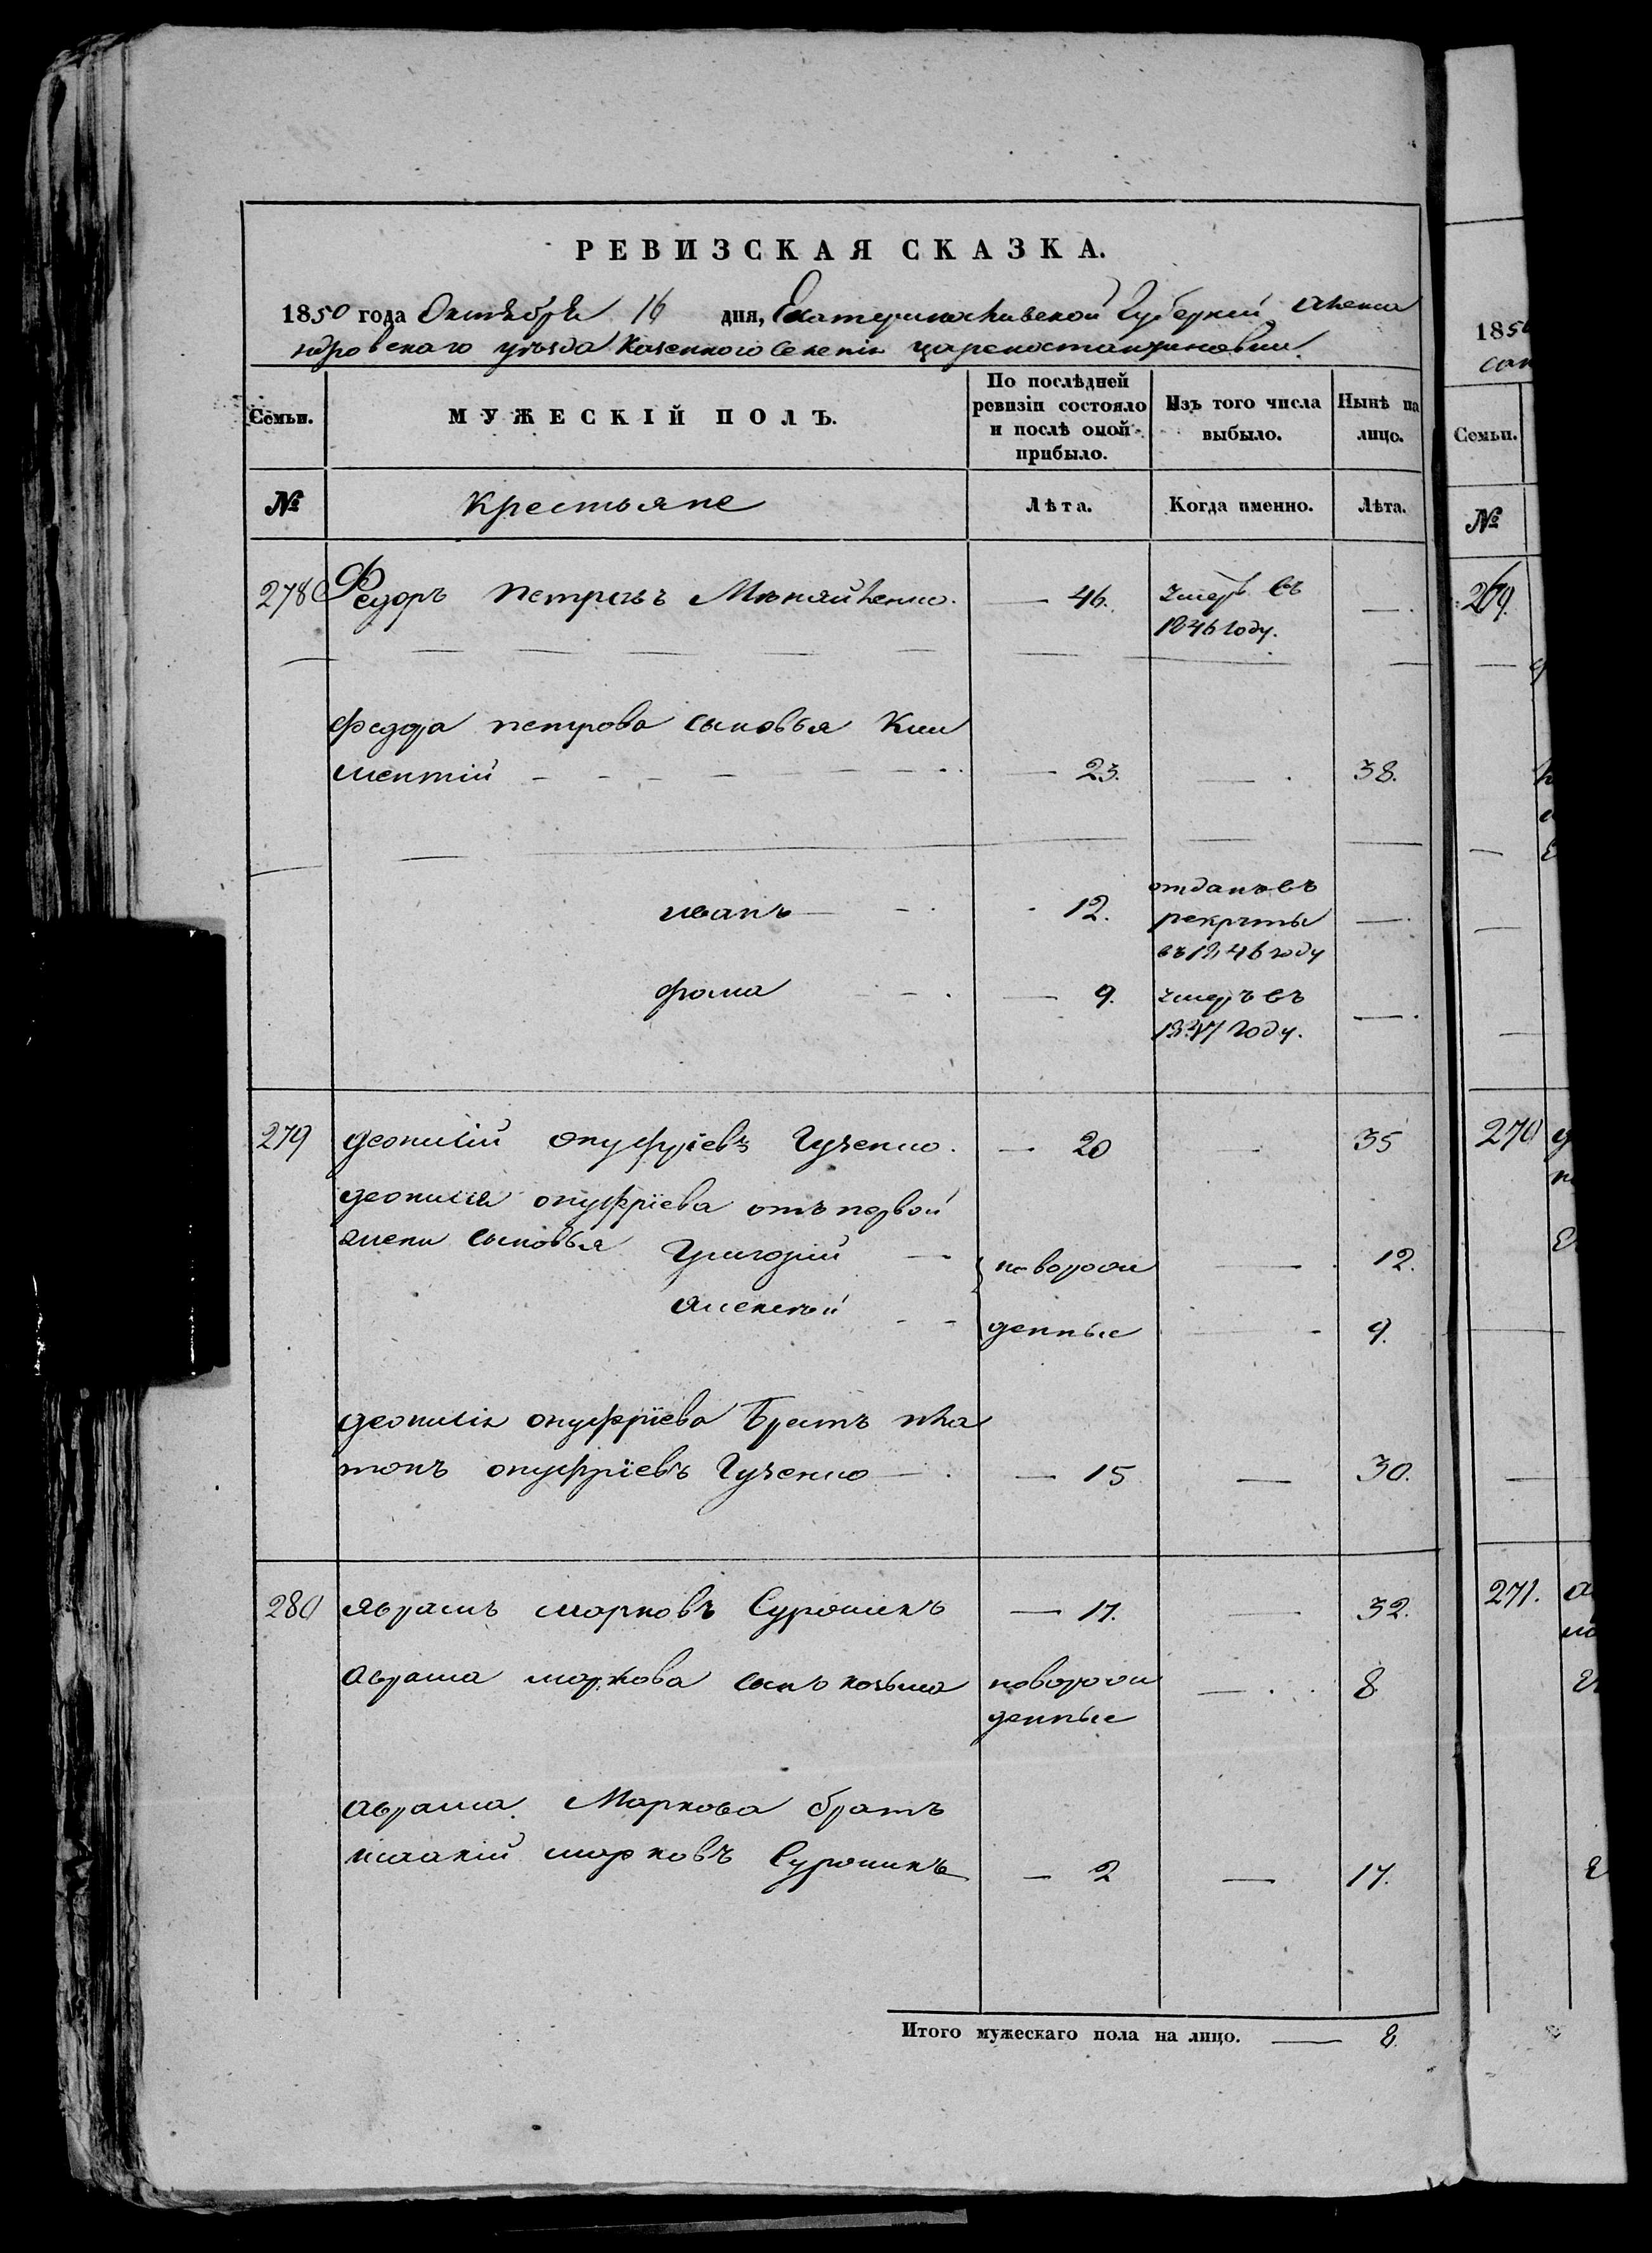 РЕВИЗСКАЯ СКАЗКА.
1850 года Октября 16 дня, Екатеринославской Губерніи Алекса
ндровскаго уѣзда Казенного Селенія Цареконстантиновки.
Семьи. МУЖЕСКІЙ ПОЛЪ. По послѣдней ревизіи состояло и послѣ оной прибыло. Изъ того числа выбыло. Нынѣ на лицо.
№ Крестьяне Лѣта. Когда именно. Лѣта.
278 Федоръ Петровъ — 46. умеръ въ —.
1846 году.
Федора петрова сыновья Кли
ментій — 23. — 38.
иванъ — 12. отданъ въ —.
рекруты
въ 1846 году
фома — 9. умеръ въ —.
1847 году.
279 деонисій онуфріевъ Гученко. — 20 — 35
деонисія онуфріева отъ первой
жены сыновья Григорій — новорож — 12.
Алексѣй — денные — 9.
деонисія онуфріева братъ пла
тонъ онуфріевъ Гученко — 15 — 30.
280 Аврамъ марковъ — 17. — 32.
Аврама маркова сынъ козьма новорож — 8
денные
Аврама Маркова братъ
марковъ — 2 — 17.
Итого мужескаго пола на лицо. — 8.
1850
Семьи.
№
269.
270
271.